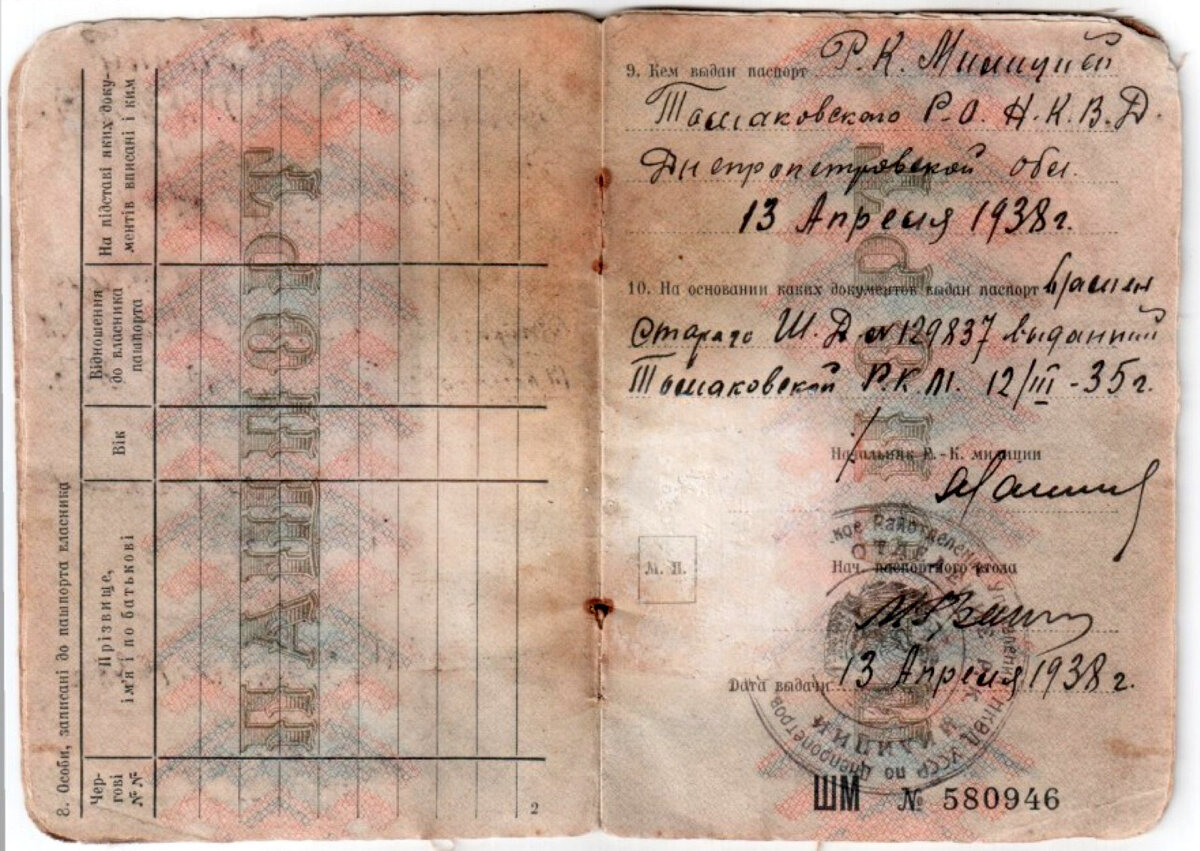 8. Особи, записані до пашпорта власника
Чер-
гові
№№
Прізвище,
ім'я і по батькові
Вік
Відношення
до власника
пашпорта
На підставі яких доку-
ментів вписані і ким
ПАШПОРТ
2
9. Кем выдан паспорт Р.К. Милицией
Томаковского Р.О. Н.К.В.Д.
Днепропетровской обл.
13 Апреля 1938г.
10. На основании каких документов выдан паспорт
Старого Ш.Д. № 129837 выданный
Томаковской Р.К.М. 12/III - 35г.
Начальник Р.-К. милиции
М. П.
Нач. паспортного стола
Дата выдачи 13 Апреля 1938г.
ШМ № 580946